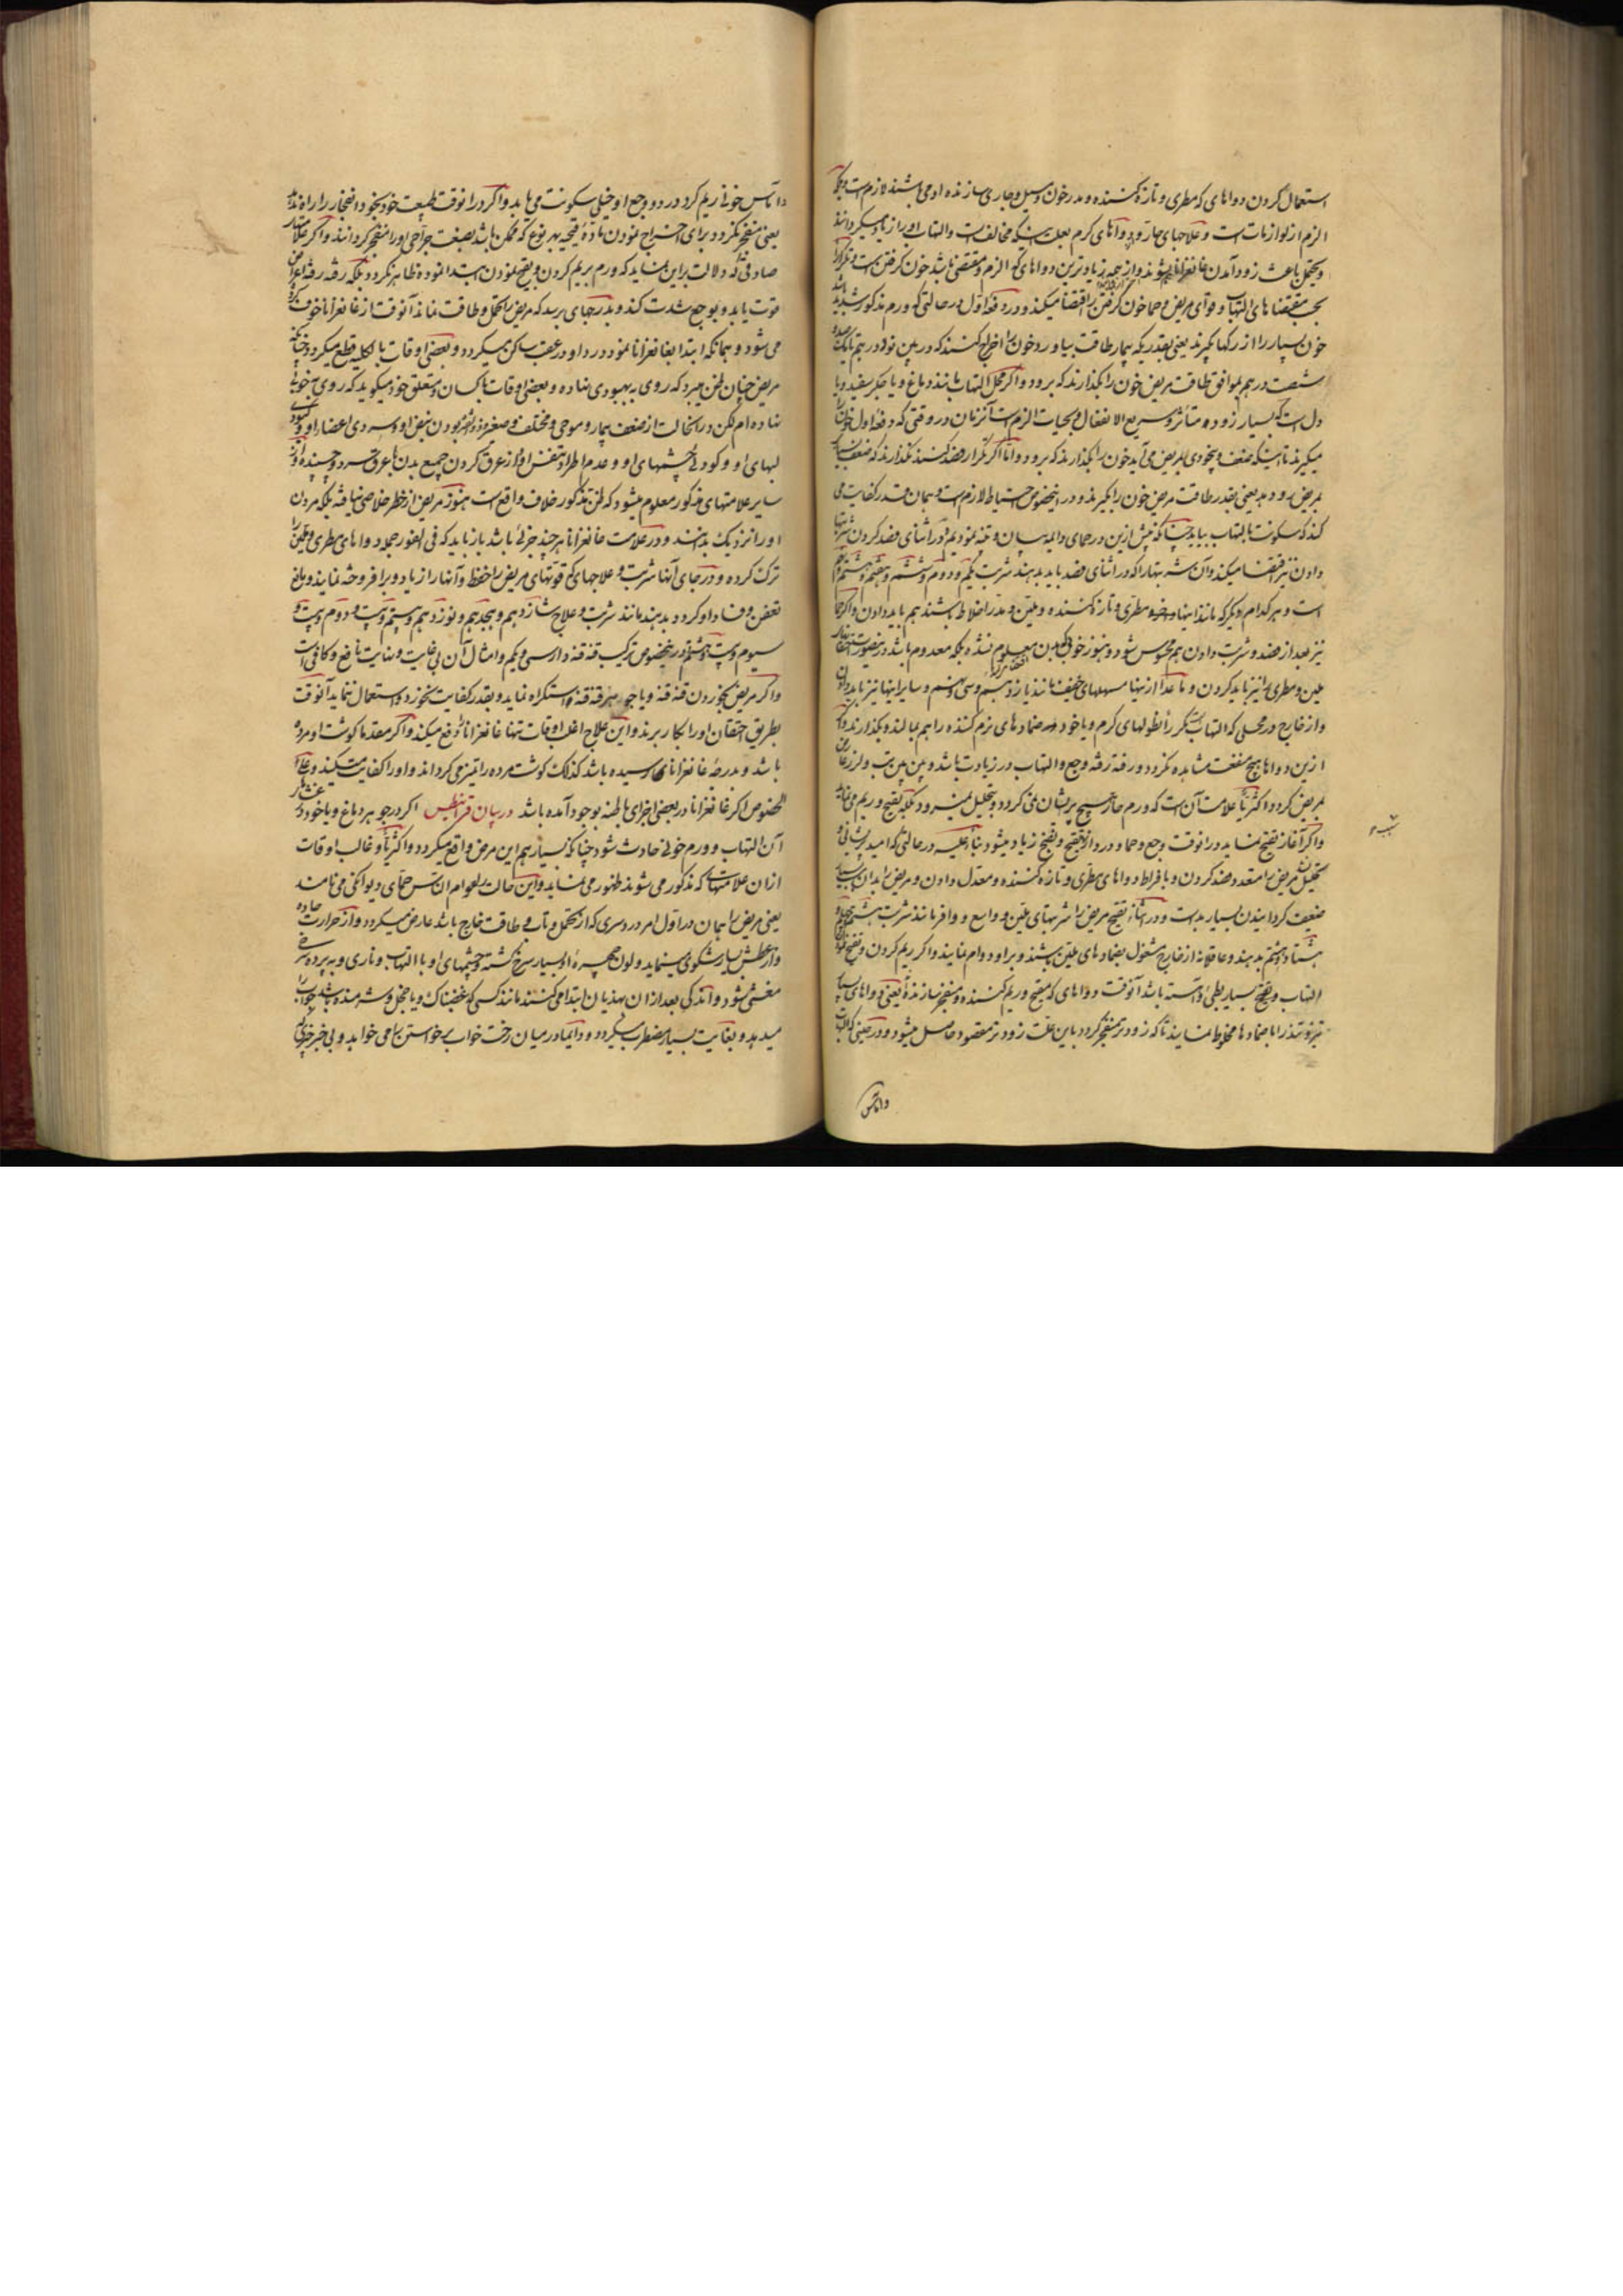 استعمال کردن دواهای که مطری و تازه کننده و مدر خون و سیل و جاری سازنده او می باشند لازم است بلکه
الزم از لوازمات است و علاجهای حار و دواهای کرم بعلت اینکه مخالف است والتهاب اورا زیاد میکردانند
و یحتمل باعث زود آمدن غانغرانا میشوند و از جمه زیاد ترین دواهای که الزم و مقتضی باشد خون کرفتن است
بحسب مقتضاهای التهاب و قوای مریض و حما خون کرفتن را اقتضا میکند و در دفعه اول در حالتی که ورم مذکور شدید
خون بسیار را از رکها بکیرند یعنی بقدریکه بیمار طاقت بیاورد خون را اخراج کنند که در بین نود درهم تا یک
شصت درهم موافق طاقت مریض خون را بکذارند که برود و اکر محل التهاب مانند دماغ و یا جکر سفید و یا
دل است که بسیار زود متأثر و سریع الانفعال و بحیات الزم است آنزمان در وقتی که دفعه اول خون را
میکیرند تا اینکه ضعف و بیخودی بمریض می آید خون را بکذارند که برود و اما اکر تکرار فصد کنند نکذارند که ضعف
بمریض رو دهد یعنی بقدر طاقت مریض خون را بکیرند و در اینخصوص احتیاط لازم است و همان قدر کفایت می
کند که سکونت بالتهاب بیاید چنانکه پیش ازین در حمای دایمه بیان و تنبیه نمودیم و در اثنای فصد کردن شربتها
دادن نیز اقتضا میکند و آن شربتها را که در اثنای فصد باید بدهند شربت یکم و دوم و ششم و هفتم و هشتم
است و هر کدام دیکر که مانند اینها مطری و تازه کننده و ملین و مدر اخلاط باشند هم باید دادن و اکر
نیز بعد از فصد و شربت دادن هم محسوس شود و هنوز خوبی بدن معلوم نشده بلکه معدوم باشد درینصورت
ملین و مطری را نیز باید کردن و ماعدا ازینها مسهلهای خفیف مانند یازدهم و سی و نهم و سایر اینها نیز باید دادن
و از خارج در محلی که التهاب است دیکر نطولهای کرم و یا خود ضمادهای نرم کننده را هم بمالند و بکذارند و اکر
ازین دواها هیچ منفعت مشاهده نکردد و رفته رفته وجع و التهاب در زیادت باشد و بین بین تب و لرز عارض
بمریض کردد اکثریا علامت آن است که ورم حار هیچ پریشان نمی کردد و بتحلیل نمیرود بلکه بقیح و ریم می نماید
و اکر آغاز نضج نماید در انوقت وجع و حما و درد از تقیح و نضج زیاد میشود بناء علیه در حالتی که امید پریشانی و
تحلیل نیست مریض را متعدد فصد کردن و بافراط دواهای مطری و تازه کننده و معدل دادن و مریض را بدان
ضعیف کردانیدن بسیار بد است و در اثنای تقیح مریض را شربتهای ملین و واسع و وافر مانند شربت بیستم
هشتاد و هشتم بدهند و عاقلانه از خارج مشغول بضمادهای ملین باشند و براو دوام نمایند و اکر ریم کردن و نضج
التهاب و نضج بسیار بطئی و آهسته باشد آنوقت دواهای که مقیح و ریم کننده و منفجر سازنده یعنی دواهای
تیز و تند را با ضمادها مخلوط نمایند تا که زودتر منفجر کردد باین علت زودتر مقصود حاصل میشود و در حینی که
واماس
داماس خونی ریم کرد درد و وجع او خیلی سکونت می یابد و اکر در انوقت طبیعت خود بخود انفجار را راه نداد
یعنی منفجر نکردد برای اخراج نمودن ماده قیحیه بهر نوع که ممکن باشد بصنعت جراحی اورا منفجر کردانند و اکر علامتهای
صادقی که دلالت براین نماید که ورم بریم کردن و بقیح نمودن ابتدا نموده ظاهر نکردد بلکه رفته رفته اعراض
قوت یابد و وجع شدت کند و بدرجای برسد که مریض را تحمل و طاقت نماند آنوقت از غانغرانا خوف کرده
می شود و همانکه ابتدا بغانغرانا نمود درد او در عقب ساکن میکردد و بعضی اوقات بالکلیه قطع میکردد چنانکه
مریض چنان ظن میبرد که روی به بهبودی نهاده و بعضی اوقات با کسان و متعلق خود میکوید که روی بخوبی
نهاده ام لکن در انحالت از ضعف بیمار و موجی و مختلف و صغیر بودن نبض او و سردی اعضاء او و کبودی
لبهای او و کودی چشمهای او و عدم اطراد تنفس او و از عرق کردن جمیع بدن با عرق سرد و چسپنده و از
سایر علامتهای مذکور معلوم میشود که ظن مذکور خلاف واقع است هنوز مریض از خطر خلاصی نیافته بلکه مردن
اورا نزدیک بدانند و در علامت غانغرانا هر چند جزئی باشد باز باید که فی الفور جمله دواهای مطری و ملین را
ترک کرده و در جای آنها شربت و علاجهای که قوتهای مریض را حفظ و آنها را زیاد و برافروخته نمایند و مانع
تعفن و فساد او کردد بدهند مانند شربت و علاج شازدهم و هیجدهم و نوزدهم و بیستم و بیست و دوم و بیست و
سیوم و بیست و هشتم در اینخصوص ترکیب قنه قنه دار سی و یکم و امثال آن بی غایت و نهایت نافع و کافی است
و اکر مریض بخوردن قنه قنه و یا جوهر قنه قنه استکراه نماید و بقدر کفایت نخورد و استعمال ننماید آنوقت
بطریق احتقان اورا بکار برند و این علاج اغلب اوقات تنها غانغرانا را دفع میکند و اکر مقدما کوشت او مرده
باشد و بدرجه غانغرانای رسیده باشد کذلک کوشت مرده را تمیز می کرداند و اورا کفایت میکند و علی
الخصوص اکر غانغرانا در بعضی اجزای باطنه بوجود آمده باشد در بیان قرانیطس اکر در جوهر دماغ و یا خود در غشاء
آن التهاب و ورم خونی حادث شود چنانکه بسیار هم این مرض واقع میکردد و اکثریا و غالب اوقات
ازان علامتها که مذکور می شوند ظهور می نماید و این حالت را عوام الناس حمای دیوانکی می نامند
یعنی مریض را همان در اول امر درد سری که از تحمل و تاب و طاقت خارج باشد عارض میکردد و از حرارت حاده
و از عطش بسیار شکوی مینماید و لون چهره او بسیار سرخ کشته و چشمهای او با التهاب و ناری و به پرده سرخ
مغشی شود و اندکی بعد ازان بهذیان ابتدا می کنند مانند کسی که غضبناک و یا خجل و شرمنده باشد جواب
میدهد و بغایت بسیار مضطرب میکردد و دایما در میان رخت خواب برخواستن را می خواهد و بی خبر